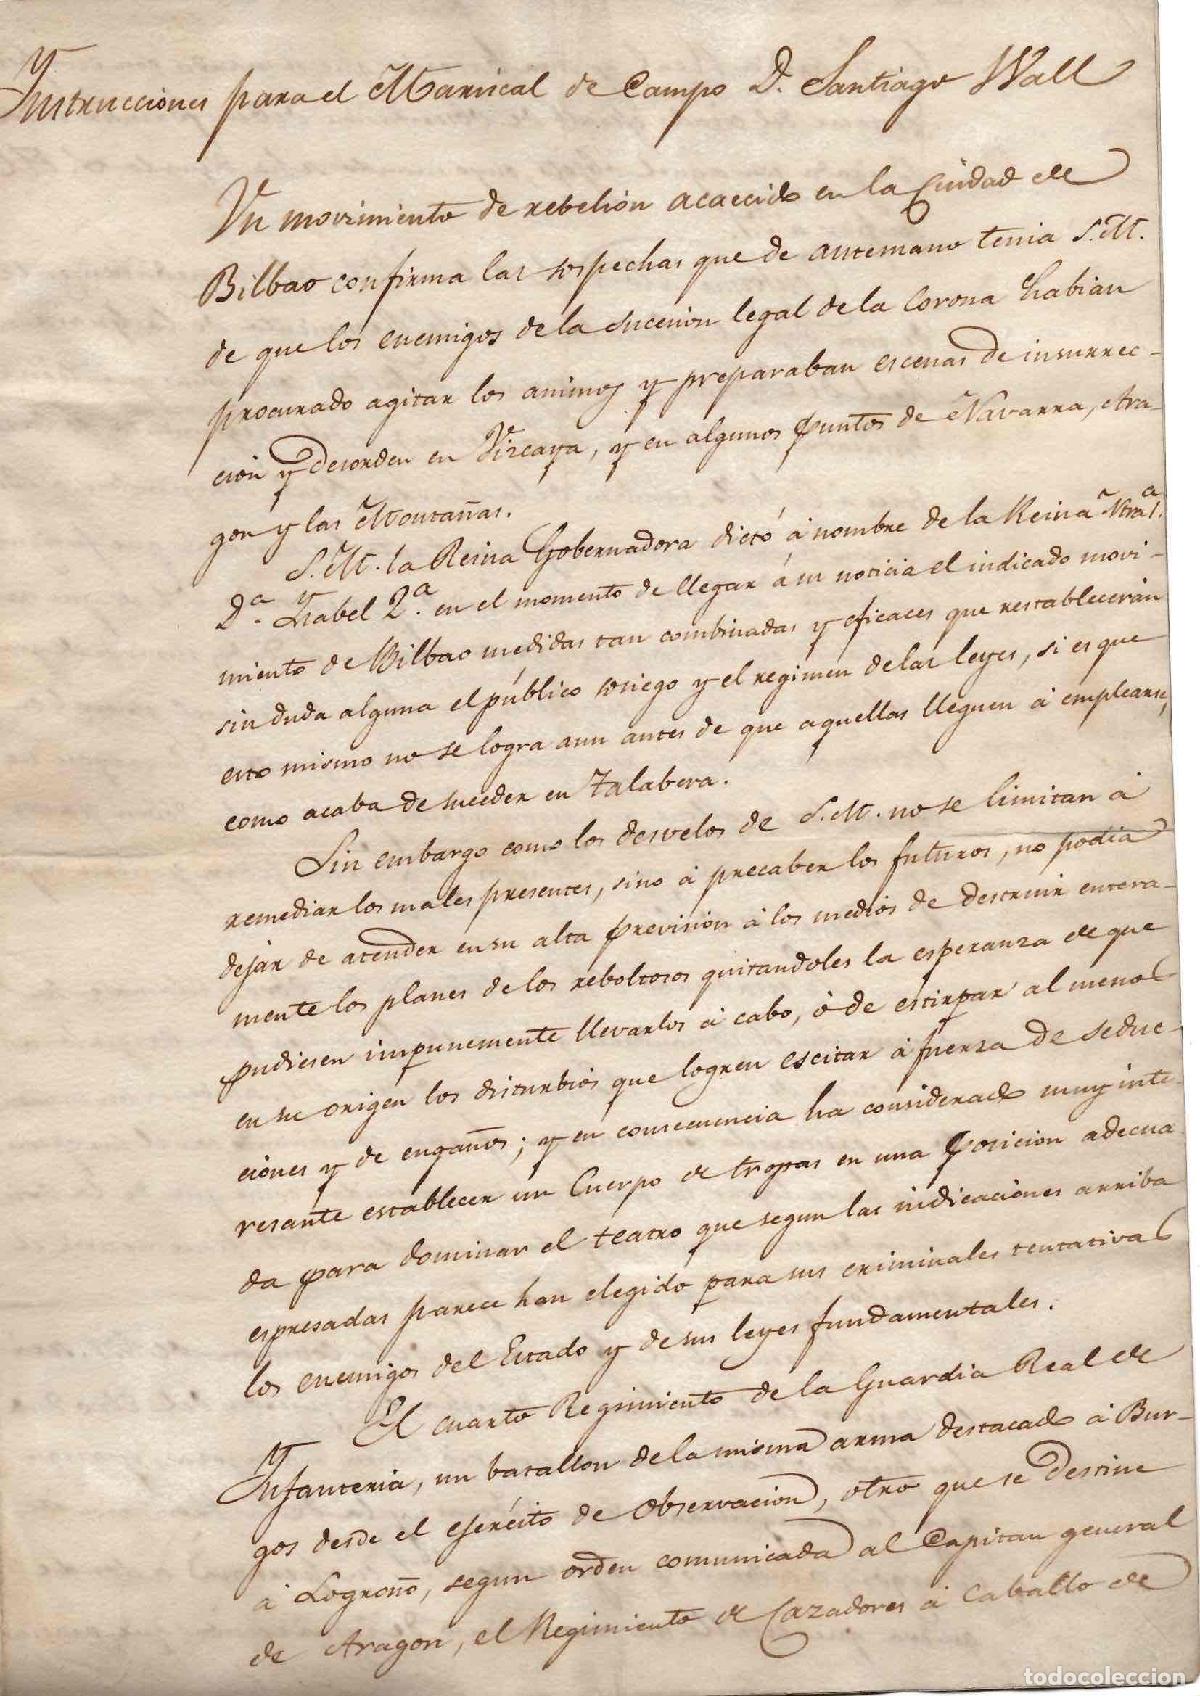 Ynstrucciones para el Mariscal de Campo D. Santiago Wall
Un movimiento de rebelion acaecido en la Ciudad de
Bilbao confirma las sospechas que de antemano tenia S.M.
de que los enemigos de la sucesion legal de la Corona habian
procurado agitar los animos y preparaban escenas de insurrec-
cion y desorden en Vizcaya, y en algunos puntos de Navarra, Ara-
gon y las Montañas.
S.M. la Reina Gobernadora dictó á nombre de la Reina Ntra. Sª.
Dª. Ysabel 2ª. en el momento de llegar á su noticia el indicado movi-
miento de Bilbao medidas tan combinadas y eficaces que restablecerán
sin duda alguna el público sosiego y el regimen de las leyes, si es que
esto mismo no se logra aun antes de que aquellas lleguen á emplearse,
como acaba de suceder en Talabera.
Sin embargo como los desvelos de S.M. no se limitan á
remediar los males presentes, sino á precaber los futuros, no podia
dejar de atender en su alta prevision á los medios de destruir entera-
mente los planes de los reboltosos quitandoles la esperanza de que
pudiesen impunemente llevarlos á cabo, ó de estirpar al menos
en su origen los disturbios que logren escitar á fuerza de seduc-
ciones y de engaños; y en consecuencia ha considerado muy inte-
resante establecer un Cuerpo de tropas en una posicion adecua
da para dominar el teatro que segun las indicaciones arriba
espresadas parece han elegido para sus criminales tentativas
los enemigos del Estado y de sus leyes fundamentales.
El cuarto Regimiento de la Guardia Real de
Ynfanteria, un batallon de la misma arma destacado á Bur-
gos desde el ejército de Observacion, otro que se destine
á Logroño, segun orden comunicada al Capitan general
de Aragon, el Regimiento de Cazadores á Caballo de
todocoleccion